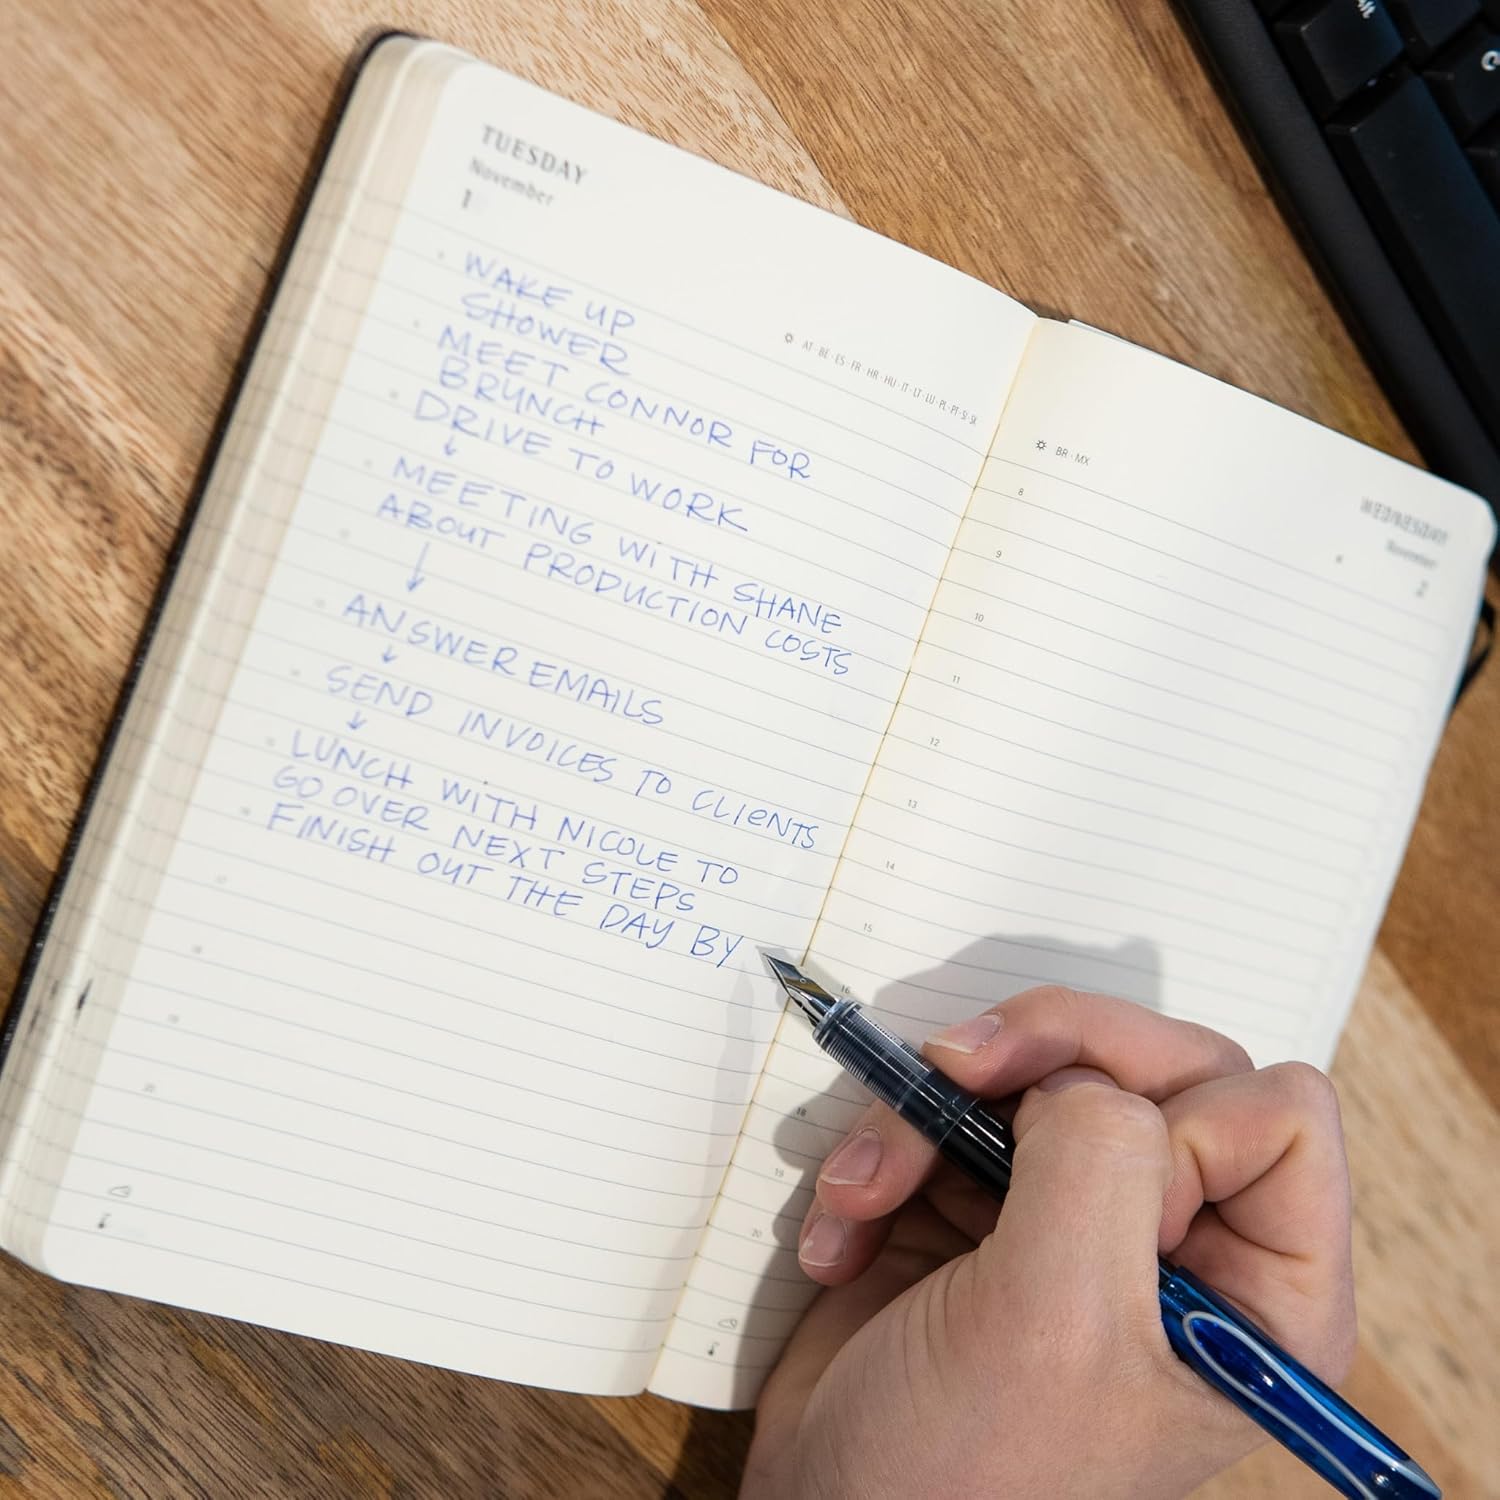 TUESDAY
November
1
WAKE UP
SHOWER
MEET CONNOR FOR
BRUNCH
DRIVE TO WORK
MEETING WITH SHANE
ABOUT PRODUCTION COSTS
ANSWER EMAILS
SEND INVOICES TO CLIENTS
LUNCH WITH NICOLE TO
GO OVER NEXT STEPS
FINISH OUT THE DAY BY
AT · BE · ES · FR · HR · HU · IT · LT · LU · PL · PT · SI · SK
18
19
20
WEDNESDAY
November
2
BR · MX
8
9
10
11
12
13
14
15
16
18
19
20